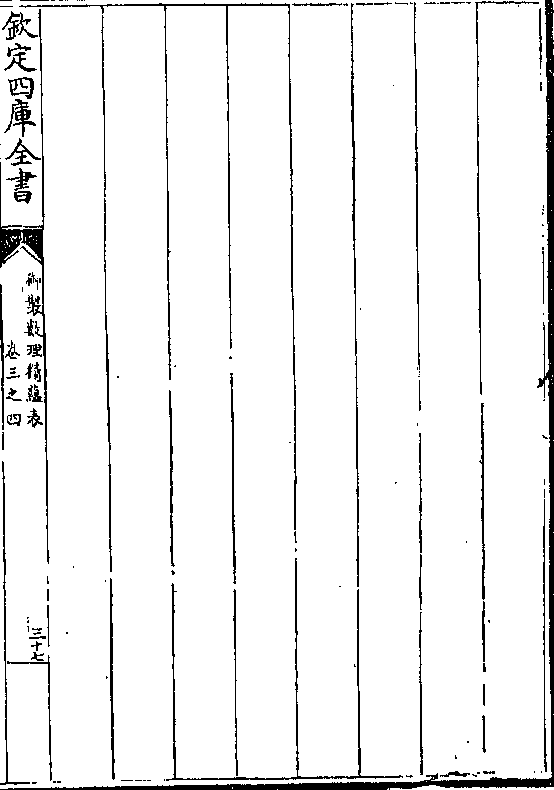 欽定四庫全書
御製數理精蘊表
卷三之四
三十七